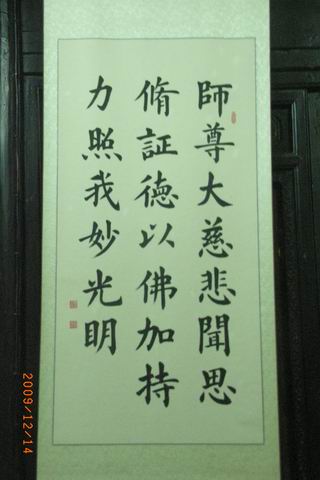 師尊大慈悲聞思
脩証德以佛加持
力照我妙光明
2009/12/14